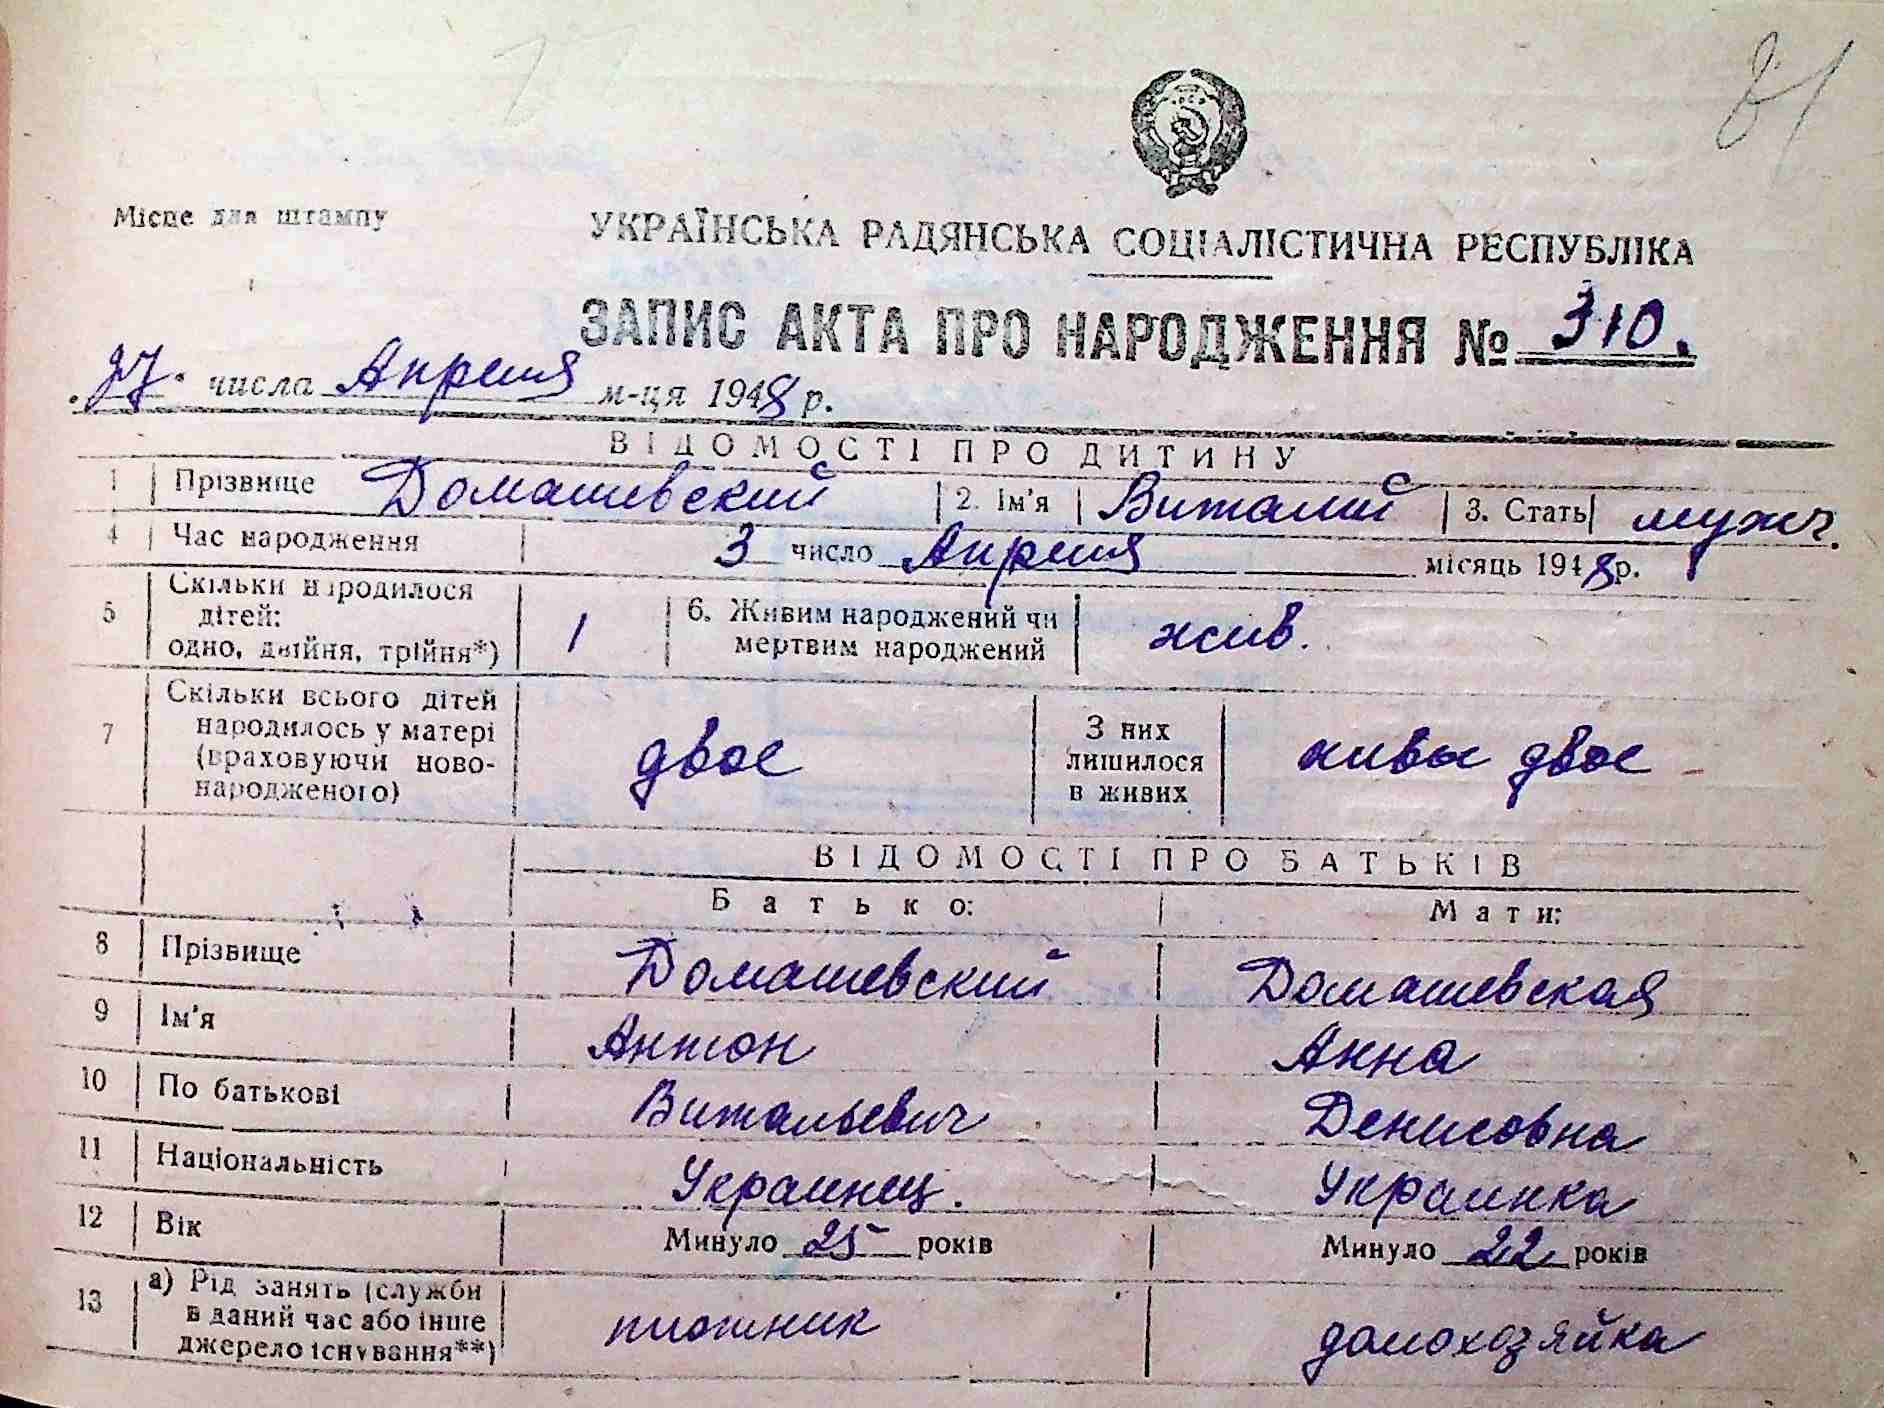 81
Місце для штампу
УКРАЇНСЬКА РАДЯНСЬКА СОЦІАЛІСТИЧНА РЕСПУБЛІКА
ЗАПИС АКТА ПРО НАРОДЖЕННЯ № 310.
27. числа Апреля м-ця 1948 р.
ВІДОМОСТІ ПРО ДИТИНУ
1 Прізвище Домашевский 2. Ім'я Виталий 3. Стать мужч.
4 Час народження 3 число Апреля місяць 1948 р.
5 Скільки народилося
дітей:
одно, двійня, трійня*) 1 6. Живим народжений чи
мертвим народжений жив.
7 Скільки всього дітей
народилось у матері
(враховуючи ново-
народженого) двое З них
лишилося
в живих живы двое
ВІДОМОСТІ ПРО БАТЬКІВ
Батько: Мати:
8 Прізвище Домашевский Домашевская
9 Ім'я Антон Анна
10 По батькові Витальевич Денисовна
11 Національність Украинец. Украинка
12 Вік Минуло 25 років Минуло 22 років
13 а) Рід занять (служби
в даний час або інше
джерело існування**) плотник домохозяйка